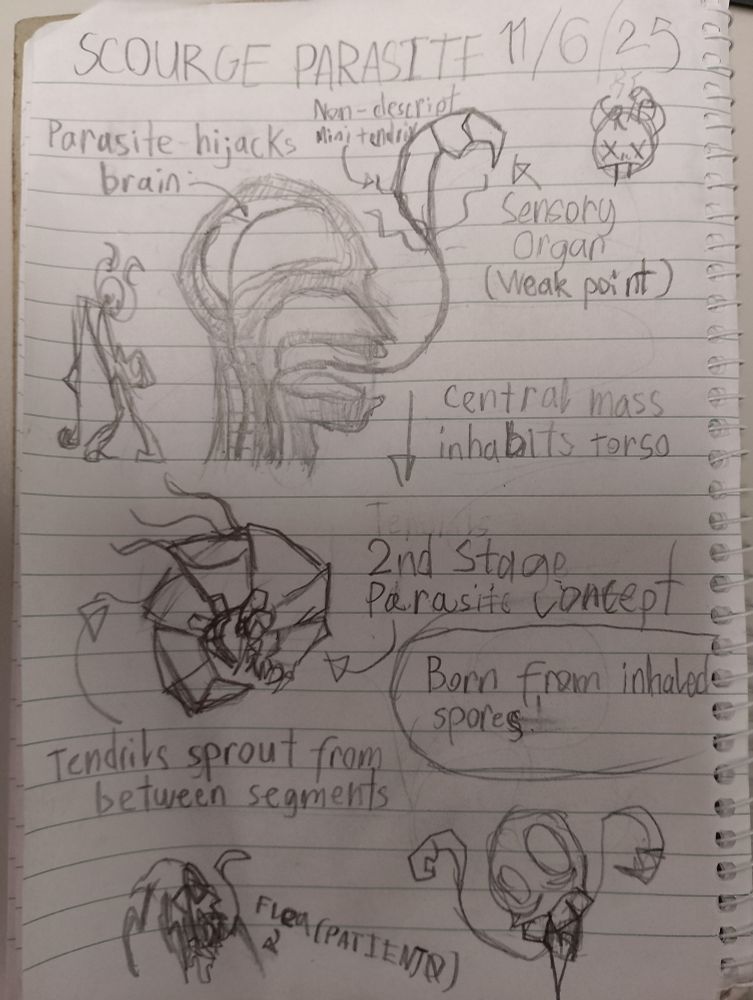 SCOURGE PARASITE 11/6/25
Non-descript
Mini tendrils
Parasite hijacks
brain
Sensory
Organ
(Weak point)
central mass
inhabits torso
Tendrils
2nd Stage
Parasite Concept
Born from inhaled
spores!
Tendrils sprout from
between segments
Flea (PATIENT 0)